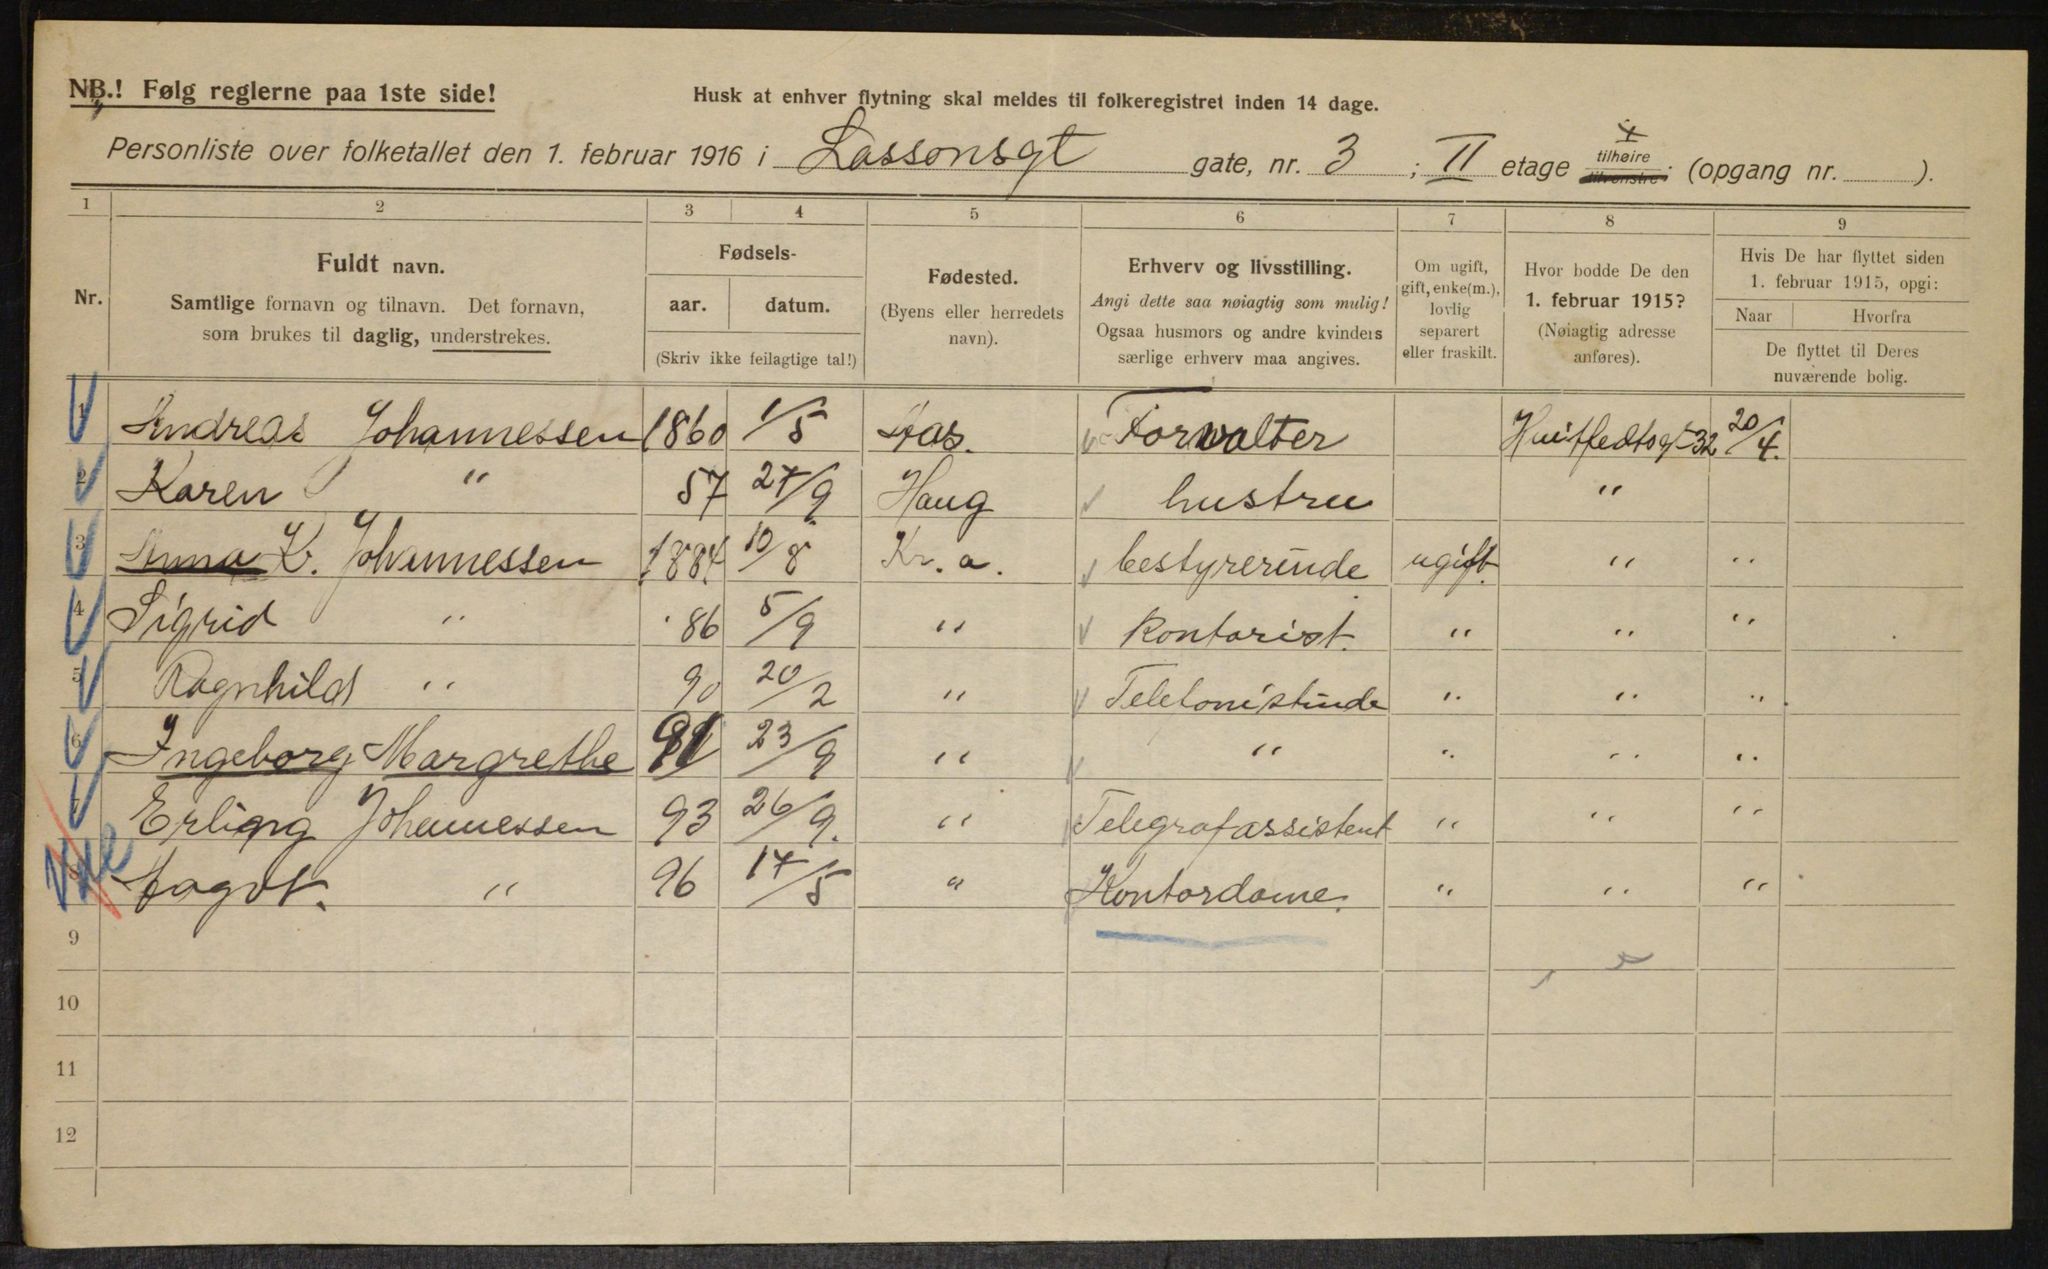 NB.! Følg reglerne paa 1ste side!
Husk at enhver flytning skal meldes til folkeregistret inden 14 dage.
Personliste over folketallet den 1. februar 1916 i Lassonsgt gate, nr. 3 ; II etage tilhøire tilvenstre (opgang nr. ).
1 2 3 4 5 6 7 8 9
Nr.
Fuldt navn.
Samtlige fornavn og tilnavn. Det fornavn,
som brukes til daglig, understrekes.
Fødsels-
aar. datum.
(Skriv ikke feilagtige tal!)
Fødested.
(Byens eller herredets
navn).
Erhverv og livsstilling.
Angi dette saa nøiagtig som mulig!
Ogsaa husmors og andre kvinders
særlige erhverv maa angives.
Om ugift,
gift, enke(m.),
lovlig
separert
eller fraskilt.
Hvor bodde De den
1. februar 1915?
(Nøiagtig adresse
anføres).
Hvis De har flyttet siden
1. februar 1915, opgi:
Naar Hvorfra
De flyttet til Deres
nuværende bolig.
1 Andreas Johannessen 1860 1/5 Aas. Forvalter 20/4.
2 Karen " 57 27/9 Haug hustru "
3 Anna K. Johannessen 1884 10/8 Kr. a. bestyrerinde ugift. " "
4 Sigrid " 86 5/9 " Kontorist. " " "
5 Ragnhild " 90 20/2 " Telefonistinde " " "
6 Ingeborg Margrethe 91 23/9 " " " " "
7 Erling Johannessen 93 26/9. " Telegrafassistent " " "
8 Aagot. " 96 17/5 " Kontordame. " " "
9
10
11
12